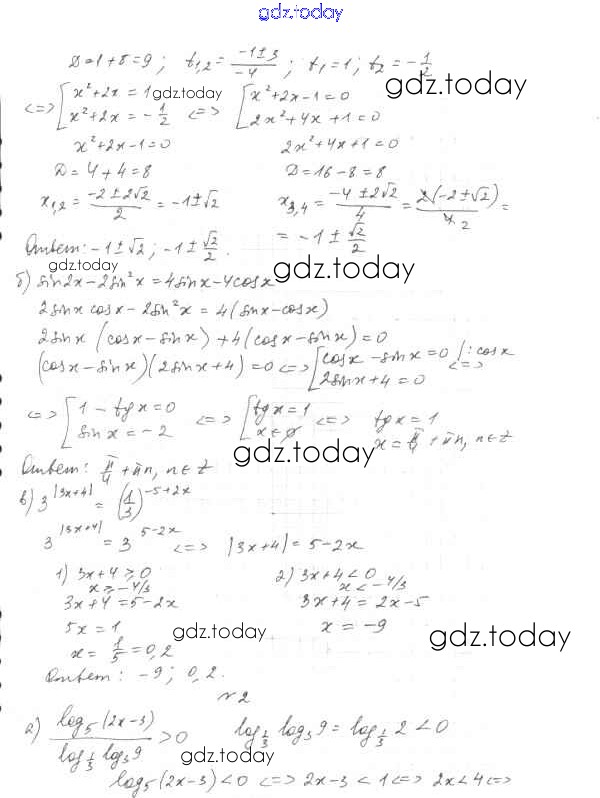 gdz.today
D=1+8=9; t₁,₂ = (-1±3)/(-4); t₁=1; t₂=-1/2
gdz.today
<=> [ x²+2x=1 gdz.today <=> [ x²+2x-1=0
x²+2x=-1/2 2x²+4x+1=0
x²+2x-1=0 2x²+4x+1=0
D=4+4=8 D=16-8=8
x₁,₂ = (-2±2√2)/2 = -1±√2 x₃,₄ = (-4±2√2)/4 = 2(-2±√2)/4 2 =
= -1 ± √2/2
Ответ: -1±√2; -1±√2/2.
gdz.today gdz.today
б) sin2x-2sin²x=4sinx-4cosx
2sinxcosx-2sin²x=4(sinx-cosx)
2sinx(cosx-sinx)+4(cosx-sinx)=0
(cosx-sinx)(2sinx+4)=0 <=> [ cosx-sinx=0 |:cosx <=>
2sinx+4=0
<=> [ 1-tgx=0 <=> [ tgx=1 <=> tgx=1
sinx=-2 x∈∅ x=π/4+πn, n∈Z
gdz.today
Ответ: π/4+πn, n∈Z
в) 3^|3x+4| = (1/3)^(-5+2x)
3^|3x+4| = 3^(5-2x) <=> |3x+4|=5-2x
1) 3x+4≥0 2) 3x+4<0
x≥-4/3 x<-4/3
3x+4=5-2x 3x+4=2x-5
5x=1 gdz.today x=-9 gdz.today
x=1/5=0,2
Ответ: -9; 0,2.
№2
а) log₅(2x-3)/(log_{1/3} log₃9) >0 log_{1/3} log₃9=log_{1/3} 2<0
gdz.today
log₅(2x-3)<0 <=> 2x-3<1 <=> 2x<4 <=>